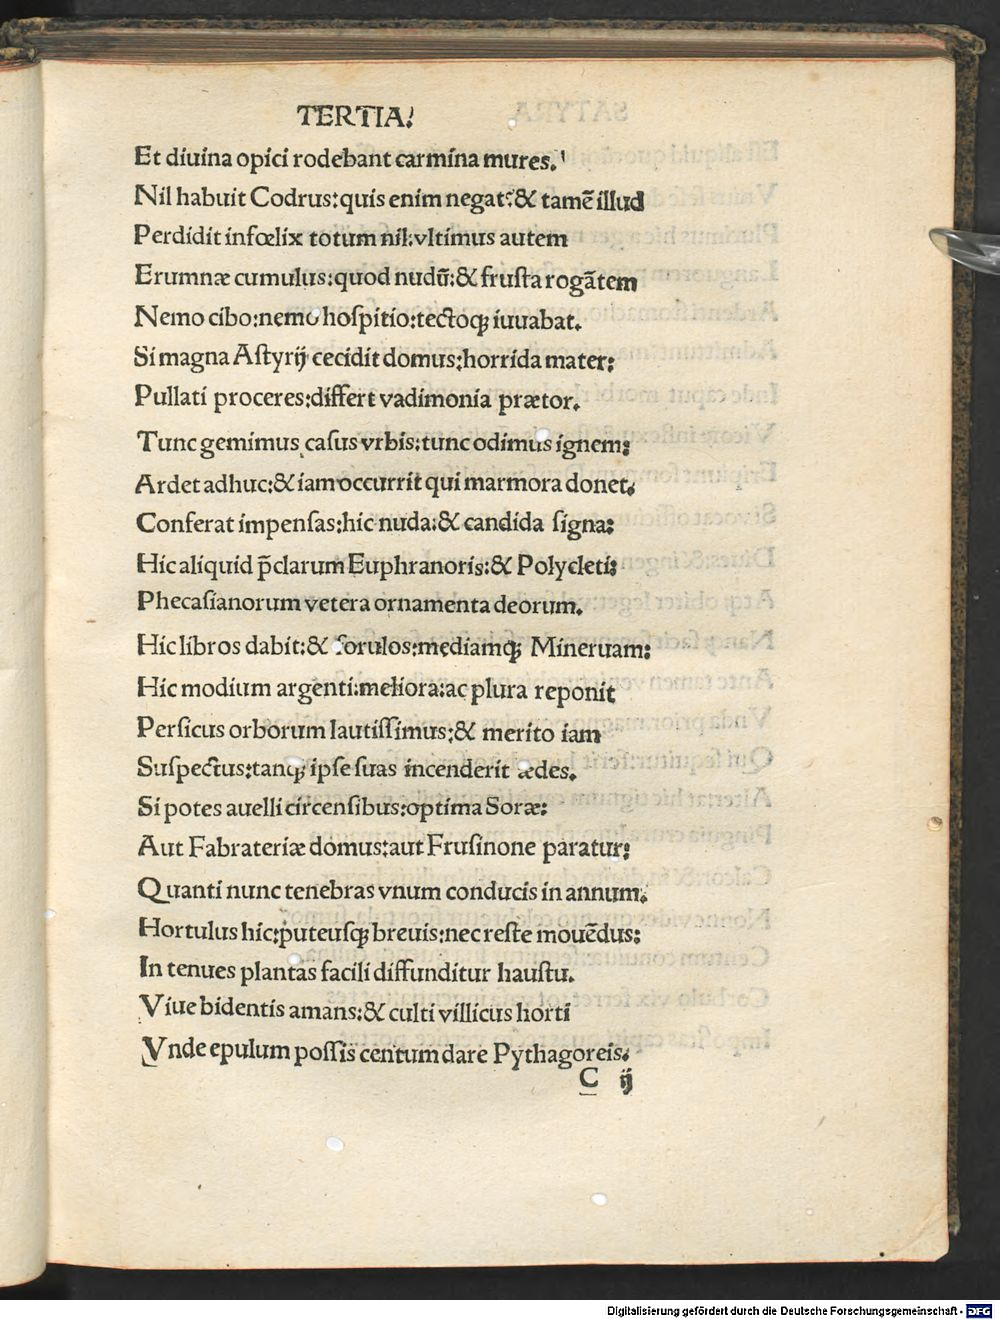 TERTIA.
Et diuina opici rodebant carmina mures.
Nil habuit Codrus: quis enim negat? & tamē illud
Perdidit infœlix totum nil: vltimus autem
Erumnæ cumulus: quod nudū: & frusta rogātem
Nemo cibo: nemo hospitio: tectoqꝫ iuuabat.
Si magna Astyrij cecidit domus: horrida mater:
Pullati proceres: differt vadimonia prætor.
Tunc gemimus casus vrbis: tunc odimus ignem:
Ardet adhuc: & iam occurrit qui marmora donet.
Conferat impensas: hic nuda: & candida signa:
Hic aliquid p̄clarum Euphranoris: & Polycleti:
Phecasianorum vetera ornamenta deorum.
Hic libros dabit: & forulos: mediamqꝫ Mineruam:
Hic modium argenti: meliora: ac plura reponit
Persicus orborum lautissimus: & merito iam
Suspectus: tanqꝫ ipse suas incenderit ædes.
Si potes auelli circensibus: optima Soræ:
Aut Fabrateriæ domus: aut Frusinone paratur:
Quanti nunc tenebras vnum conducis in annum.
Hortulus hic: puteusqꝫ breuis: nec reste mouēdus:
In tenues plantas facili diffunditur haustu.
Viue bidentis amans: & culti villicus horti
Vnde epulum possis centum dare Pythagoreis.
C ij
Digitalisierung gefördert durch die Deutsche Forschungsgemeinschaft - DFG